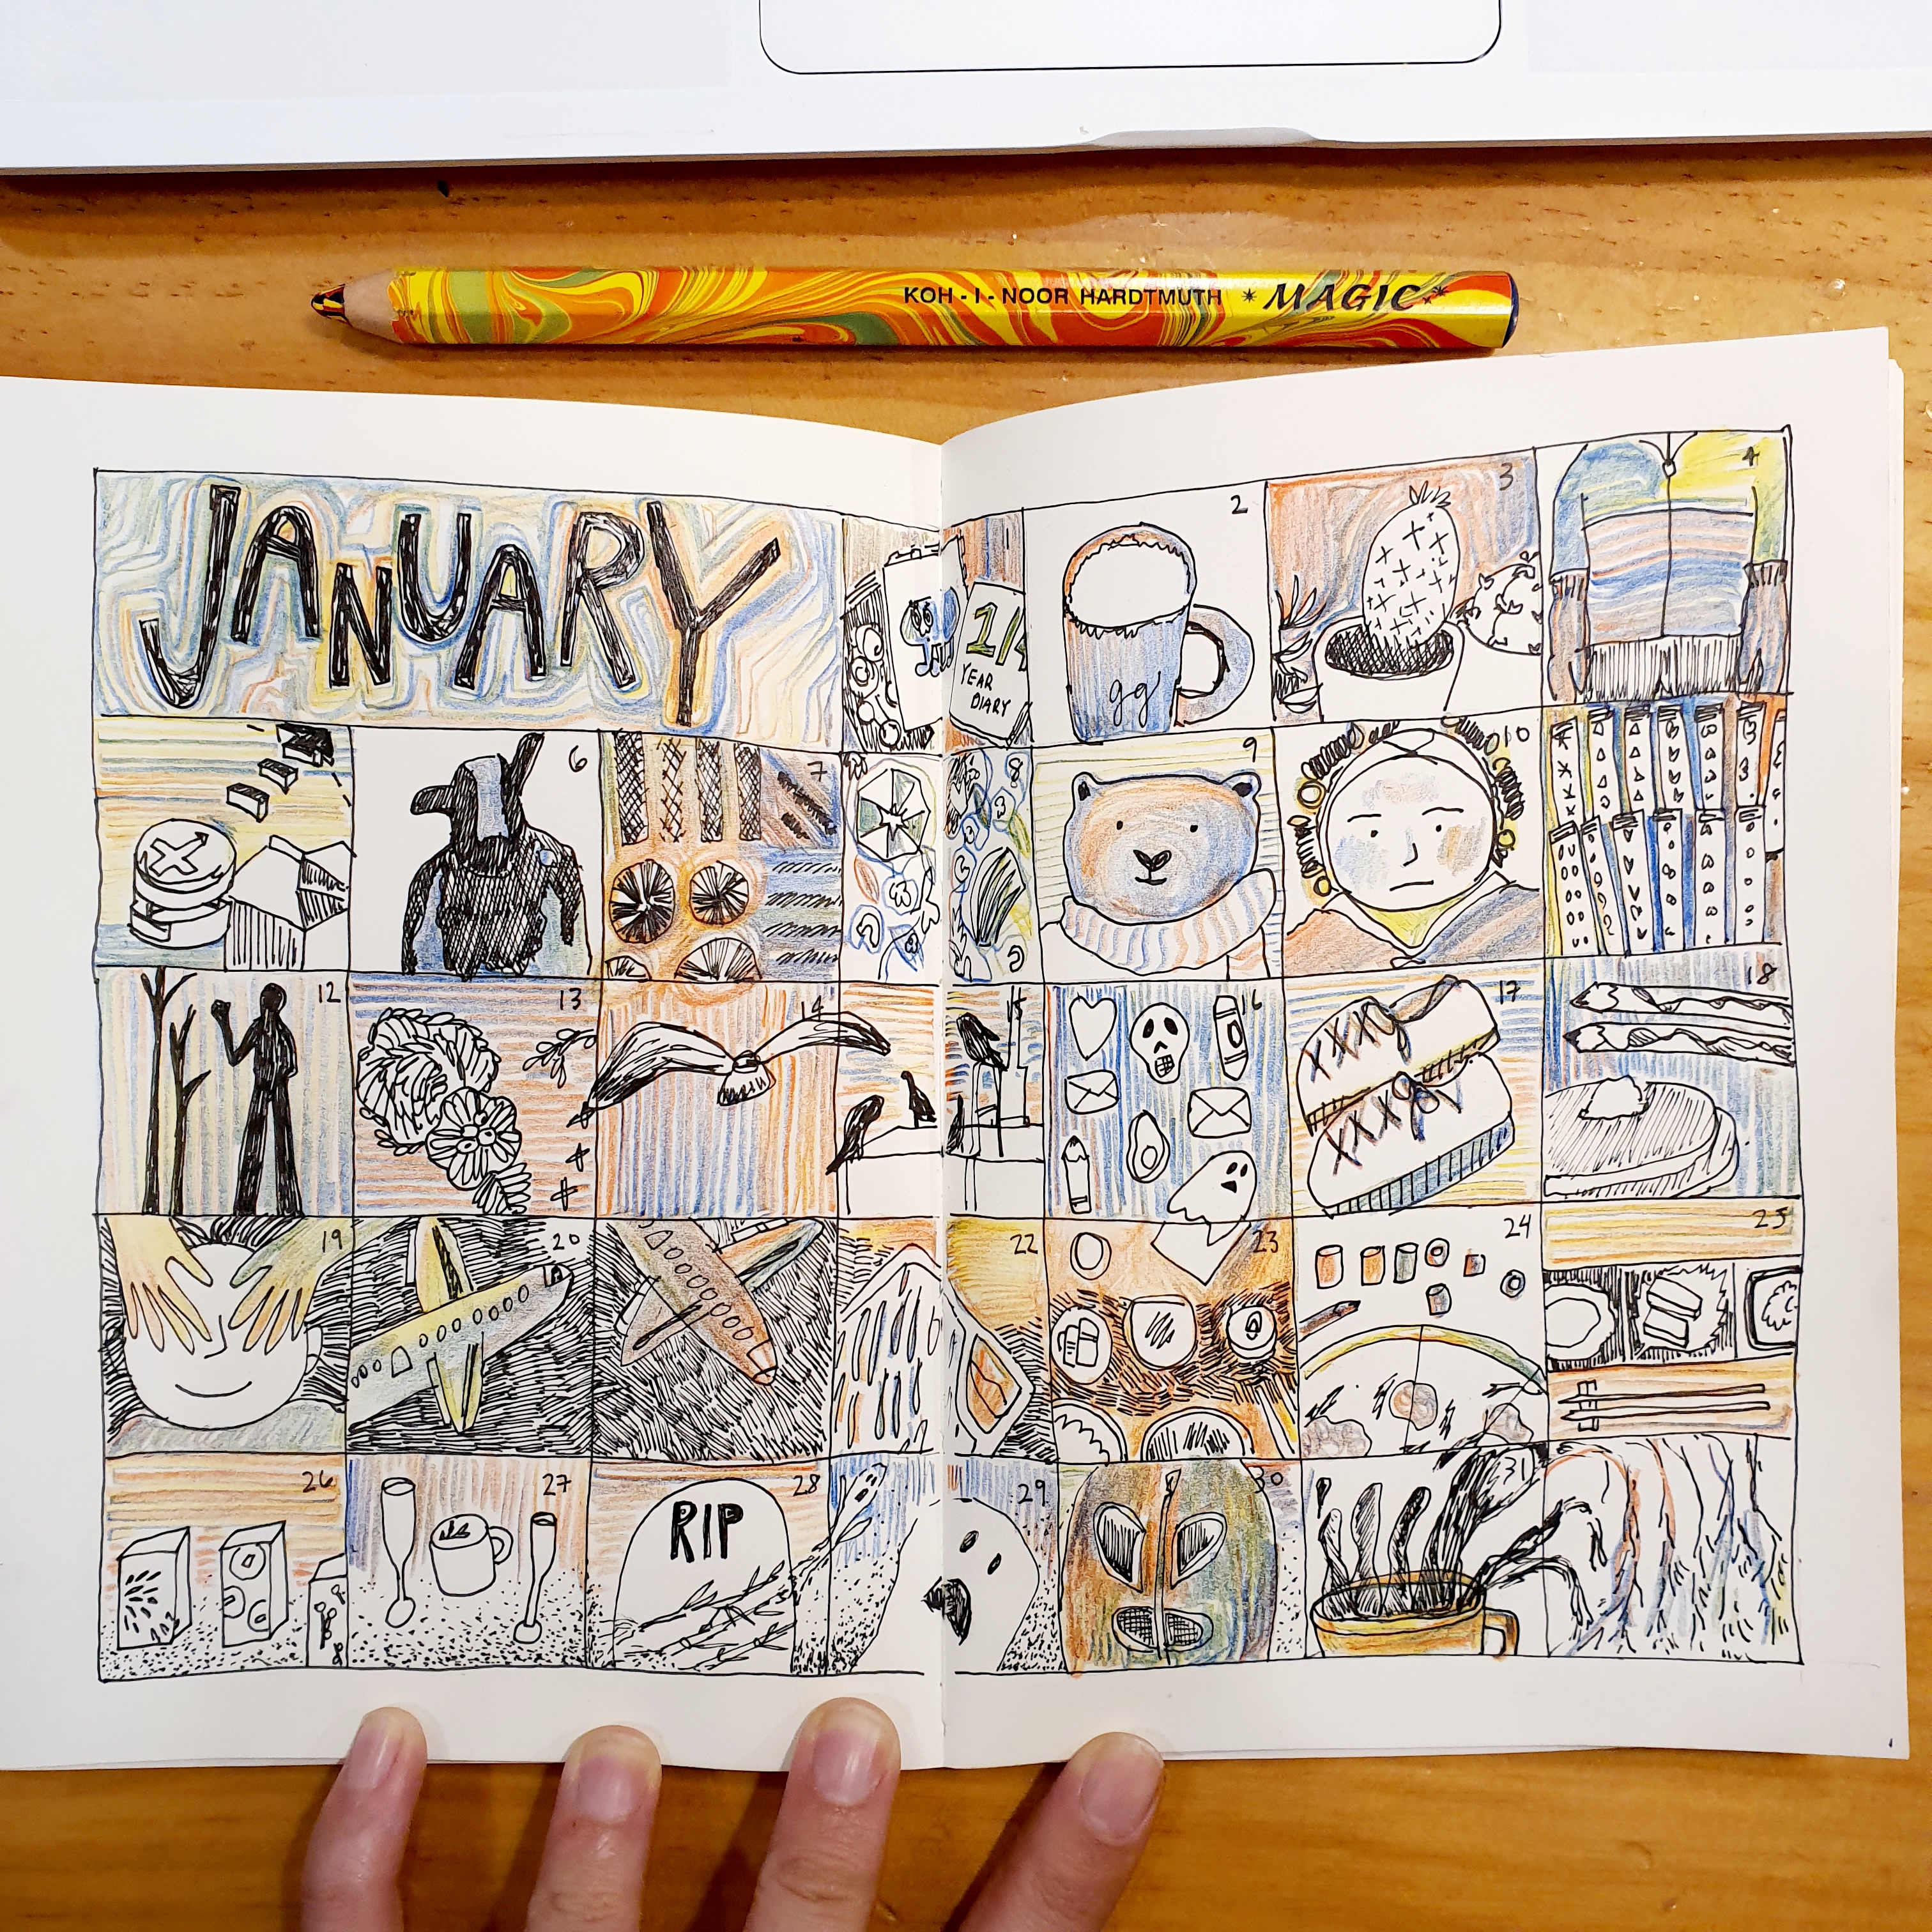 KOH-I-NOOR HARDTMUTH * MAGIC
JANUARY
1
YEAR
DIARY
2
gg
3
4
6
7
8
9
10
12
13
14
15
16
17
18
19
20
22
23
24
25
26
27
28
RIP
29
30
31